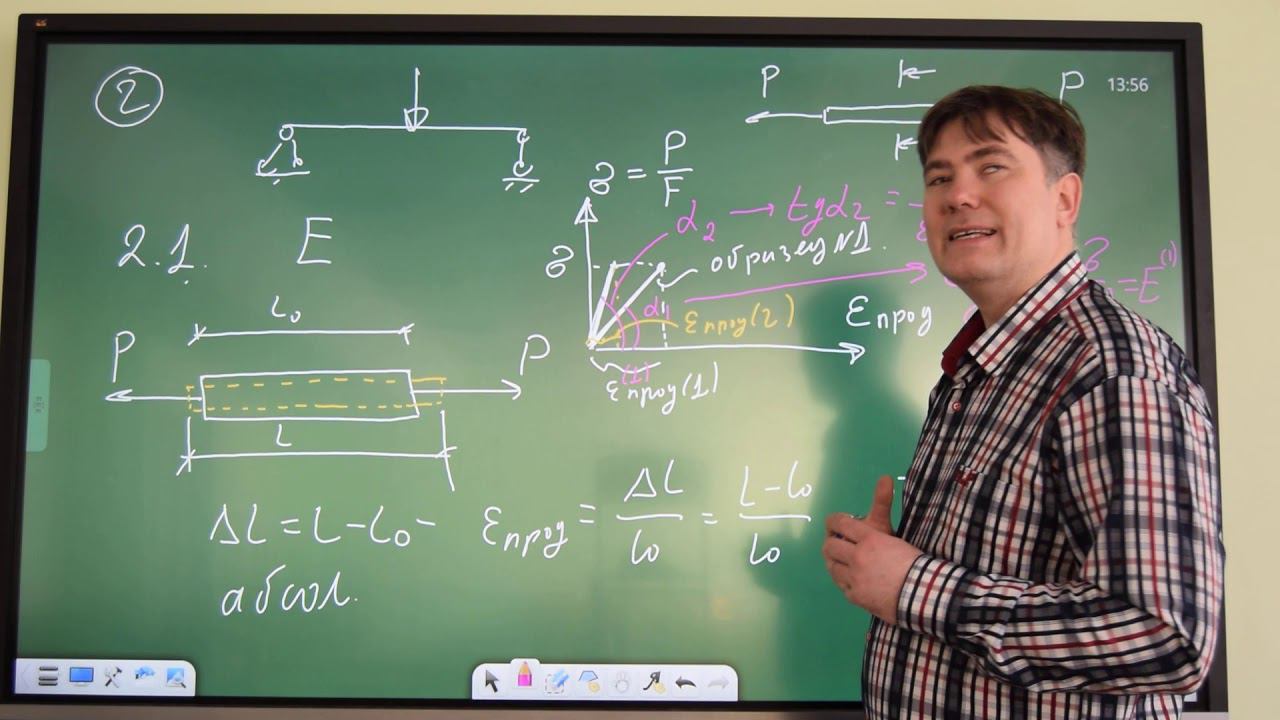 2
P P 13:56
σ = P/F
2.1. E
α2 → tgα2 = –
образец №1.
σ
α1
σ
= E(1)
εпрод(2)
εпрод
(1)
εпрод(1)
L0
P P
L
ΔL = L – L0 –
абсол.
εпрод = ΔL/L0 = L – L0/L0